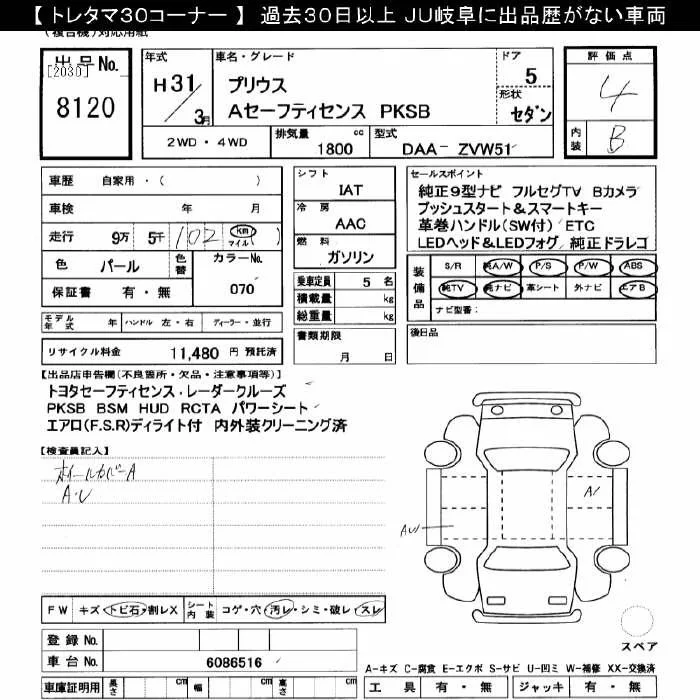 【 トレタマ30コーナー 】 過去30日以上 JU岐阜に出品歴がない車両
(複合機)対応用紙
出品No.
[2030]
8120
年式
H31/3月
車名・グレード
プリウス
Aセーフティセンス PKSB
ドア
5
形状
セダン
評価点
4
内装
B
2WD・4WD
排気量 cc
1800
型式
DAA- ZVW51
車歴 自家用・( )
車検 年 月
走行 9万 5千 102 km マイル ( )
色 パール 色替
カラーNo.
070
保証書 有・無
モデル年式 年 ハンドル 左・右 ディーラー・並行
リサイクル料金 11,480 円 預託済
シフト
IAT
冷房
AAC
燃料
ガソリン
乗車定員 5 名
積載量 kg
総重量 kg
書類期限
月 日
セールスポイント
純正9型ナビ フルセグTV Bカメラ
プッシュスタート&スマートキー
革巻ハンドル(SW付) ETC
LEDヘッド&LEDフォグ 純正ドラレコ
装備品
S/R 純A/W P/S P/W ABS
純TV 純ナビ 革シート 外ナビ エアB
ナビ型番:
後日品
【出品店申告欄(不良箇所・欠品・注意事項等)】
トヨタセーフティセンス・レーダークルーズ
PKSB BSM HUD RCTA パワーシート
エアロ(F.S.R)ディライト付 内外装クリーニング済
【検査員記入】
ホイールカバーA
A・U
A1
AU
FW キズ・トビ石・割レX シート内装 コゲ・穴・汚レ・シミ・破レ・スレ
登録No.
車台No. 6086516
車庫証明用 長さ cm 幅 cm 高さ cm
スペア
A-キズ C-腐食 E-エクボ S-サビ U-凹ミ W-補修 XX-交換済
工具 有・無 ジャッキ 有・無